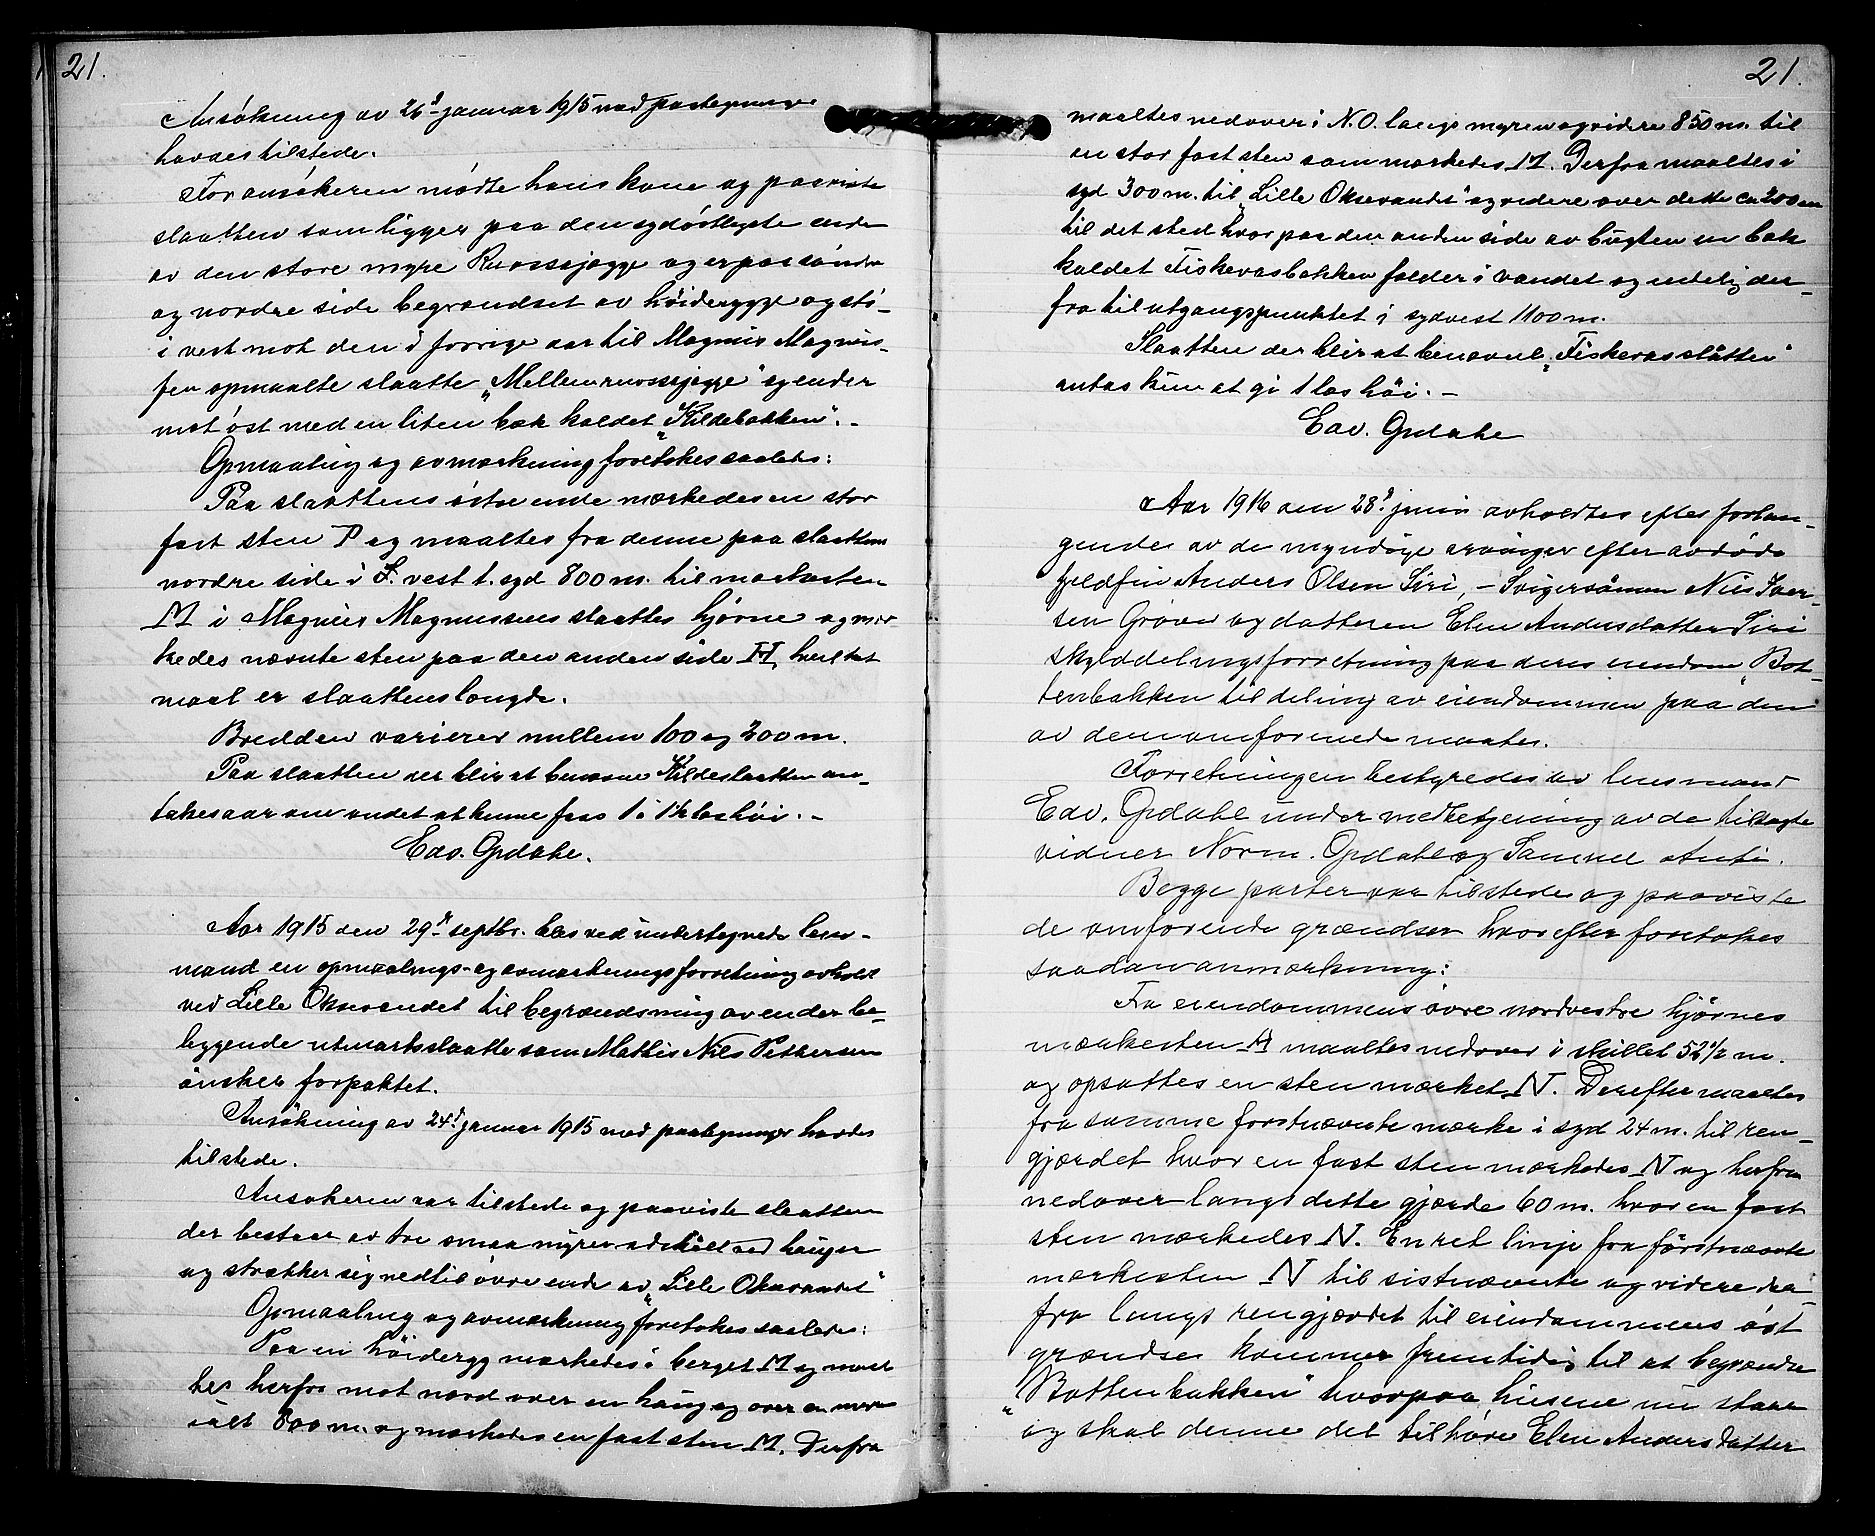 21.
Ansökning av 26d januar 1915 med paategninger
havdes tilstede.
For ansökeren mödte hans kone og paaviste
slaatten som ligger paa den sydöstligste ende
av den store myr Ruossjægge og er paa söndre
og nordre side begrændset av höiderygge og stö-
i vest mot den i forrige aar til Magnus Magnus-
sen opmaalte slaatte „Mellemruossjægge" og ender
mot öst med en liten bæk kaldet „Kildebækken". -
Opmaaling og avmerkning foretokes saaledes:
Paa slaattens östre ende mærkedes en stor
fast sten P og maaltes fra denne paa slaattens
nordre side i S. vest t. syd 800 m. til mærkesten
M i Magnus Magnussens slaattes hjörne og mær
kedes nævnte sten paa den anden side M, hvilket
maal er slaattens længde.
Bredden varierer mellem 100 og 200 m.
Paa slaatten der blir at benævne Kildeslaatten an-
takes aar om andet at kunne faas 1 à 1½ læs höi. -
Edv. Opdahl.
Aar 1915 den 29d septbr. blev ved undertegnede lens-
mand en opmaalings- og avmærkningsforretning avholdt
ved Lille Oksevandet til begrændsning av en der be-
liggende utmarksslaatte som Mathis Nils Pettersen
önsker forpaktet.
Ansökning av 24d januar 1915 med paategninger havdes
tilstede.
Ansökeren var tilstede og paaviste slaatten
der bestaar av tre smaa myrer adskilt ved hauger
og strækker sig ned til övre ende av „Lille Oksevandet"
Opmaaling og avmærkning foretokes saaledes:
Paa en höideryg mærkedes i berget M og maal
tes herfra mot nord over en haug og over en myr
ialt 800 m. og mærkedes en fast sten M. Derfra
21.
maaltes nedover i N.O. langs myren og videre 850 m. til
en stor fast sten som mærkedes M. Derfra maaltes i
syd 300 m. til „Lille Oksevandet" og videre over dette ca 200 m
til det sted hvor paa den anden side av bugten en bæk
kaldet Fiskevasbækken falder i vandet og endelig der-
fra til utgangspunktet i sydvest 1100 m.
Slaatten der blir at benævne „Fiskevasslåtten"
antas kun at gi 1 læs höi. -
Edv. Opdahl
Aar 1916 den 28d juni avholdtes efter forlan-
gende av de myndige arvinger efter avdöde
fjeldfin Anders Olsen Siri, - Svigersönnen Nils Iver-
sen Gröver og datteren Elen Andersdatter Siri
skylddelingsforretning paa deres eiendom „Bot-
tenbakken til deling av eiendommen paa den
av dem omforenede maate.
Forretningen bestyredes av lensmand
Edv. Opdahl under medbetjening av de tilsagte
vidner Norm. Opdahl og Samuel Anti.
Begge parter var tilstede og paaviste
de omforende grændser hvorefter foretokes
saadan anmærkning:
Fra eiendommens övre nordvestre hjörnes
mærkesten A maaltes nedover i skillet 52½ m.
og opsattes en sten mærket N. Derefter maaltes
fra samme forstnævnte mærke i syd 24 m. til ren-
gjærdet hvor en fast sten mærkedes N og herfra
nedover langs dette gjærde 60 m. hvor en fast
sten mærkedes N. En ret linje fra förstnævnte
mærkesten N til sistnævnte og videre der-
fra langs rengjærdet til eiendommens öst
grændse kommer fremtidig til at begrændse
„Bottenbakken" hvorpaa husene nu staar
og skal denne del tilhöre Elen Andersdatter